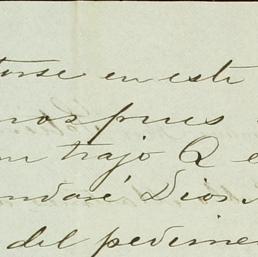 torse en este
nos pues
trajo Q e
ndaré, Dios
del pedime